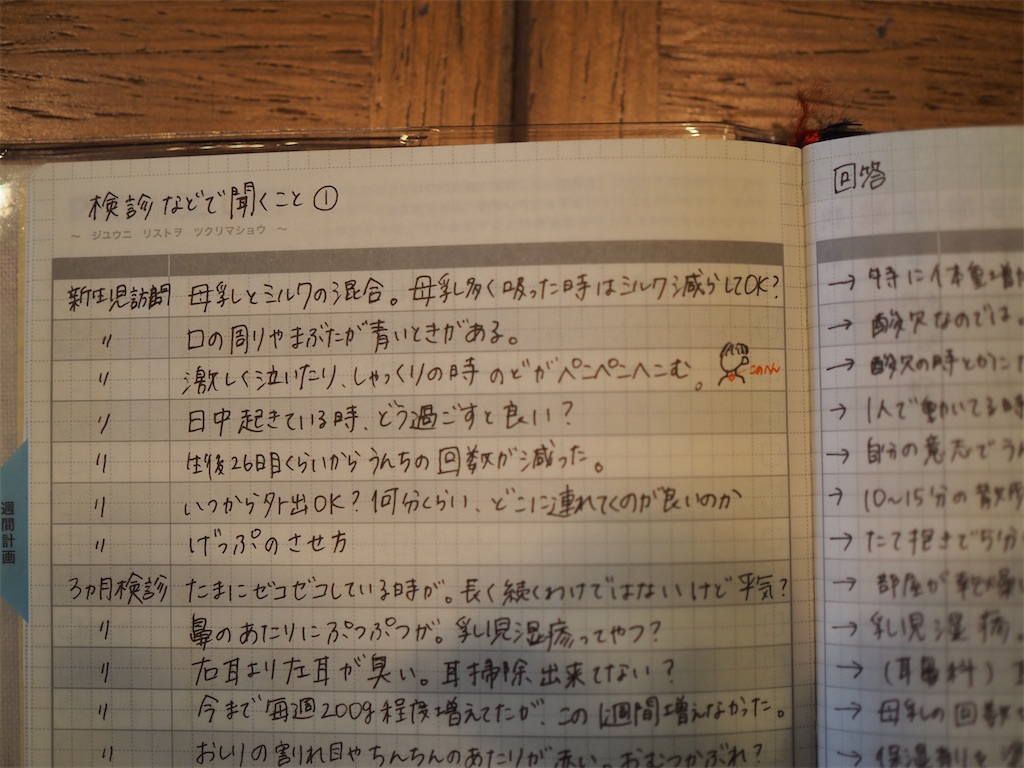 検診などで聞くこと①
～ ジユウニ リストヲ ツクリマショウ ～
新生児訪問 母乳とミルクの混合。母乳多く吸った時はミルク減らしてOK?
〃 口の周りやまぶたが青いときがある。
〃 激しく泣いたり、しゃっくりの時のどがペコペコへこむ。 このへん
〃 日中起きている時、どう過ごすと良い?
〃 生後26日目くらいからうんちの回数が減った。
〃 いつから外出OK? 何分くらい、どこに連れてくのが良いのか
〃 げっぷのさせ方
3ヵ月検診 たまにゼコゼコしている時が。長く続くわけではないけど平気?
〃 鼻のあたりにぷつぷつが。乳児湿疹ってやつ?
〃 右耳より左耳が臭い。耳掃除出来てない?
〃 今まで毎週200g程度増えてたが、この1週間増えなかった。
〃 おしりの割れ目やちんちんのあたりが赤い。おむつかぶれ?
週間計画
回答
→ 特に体重増
→ 酸欠なのでは。
→ 酸欠の時とか
→ 1人で動いてる時
→ 自分の意志でう
→ 10～15分の散歩
→ たて抱きで5分
→ 部屋が乾燥
→ 乳児湿疹。
→ (耳鼻科)
→ 母乳の回数
→ 保湿